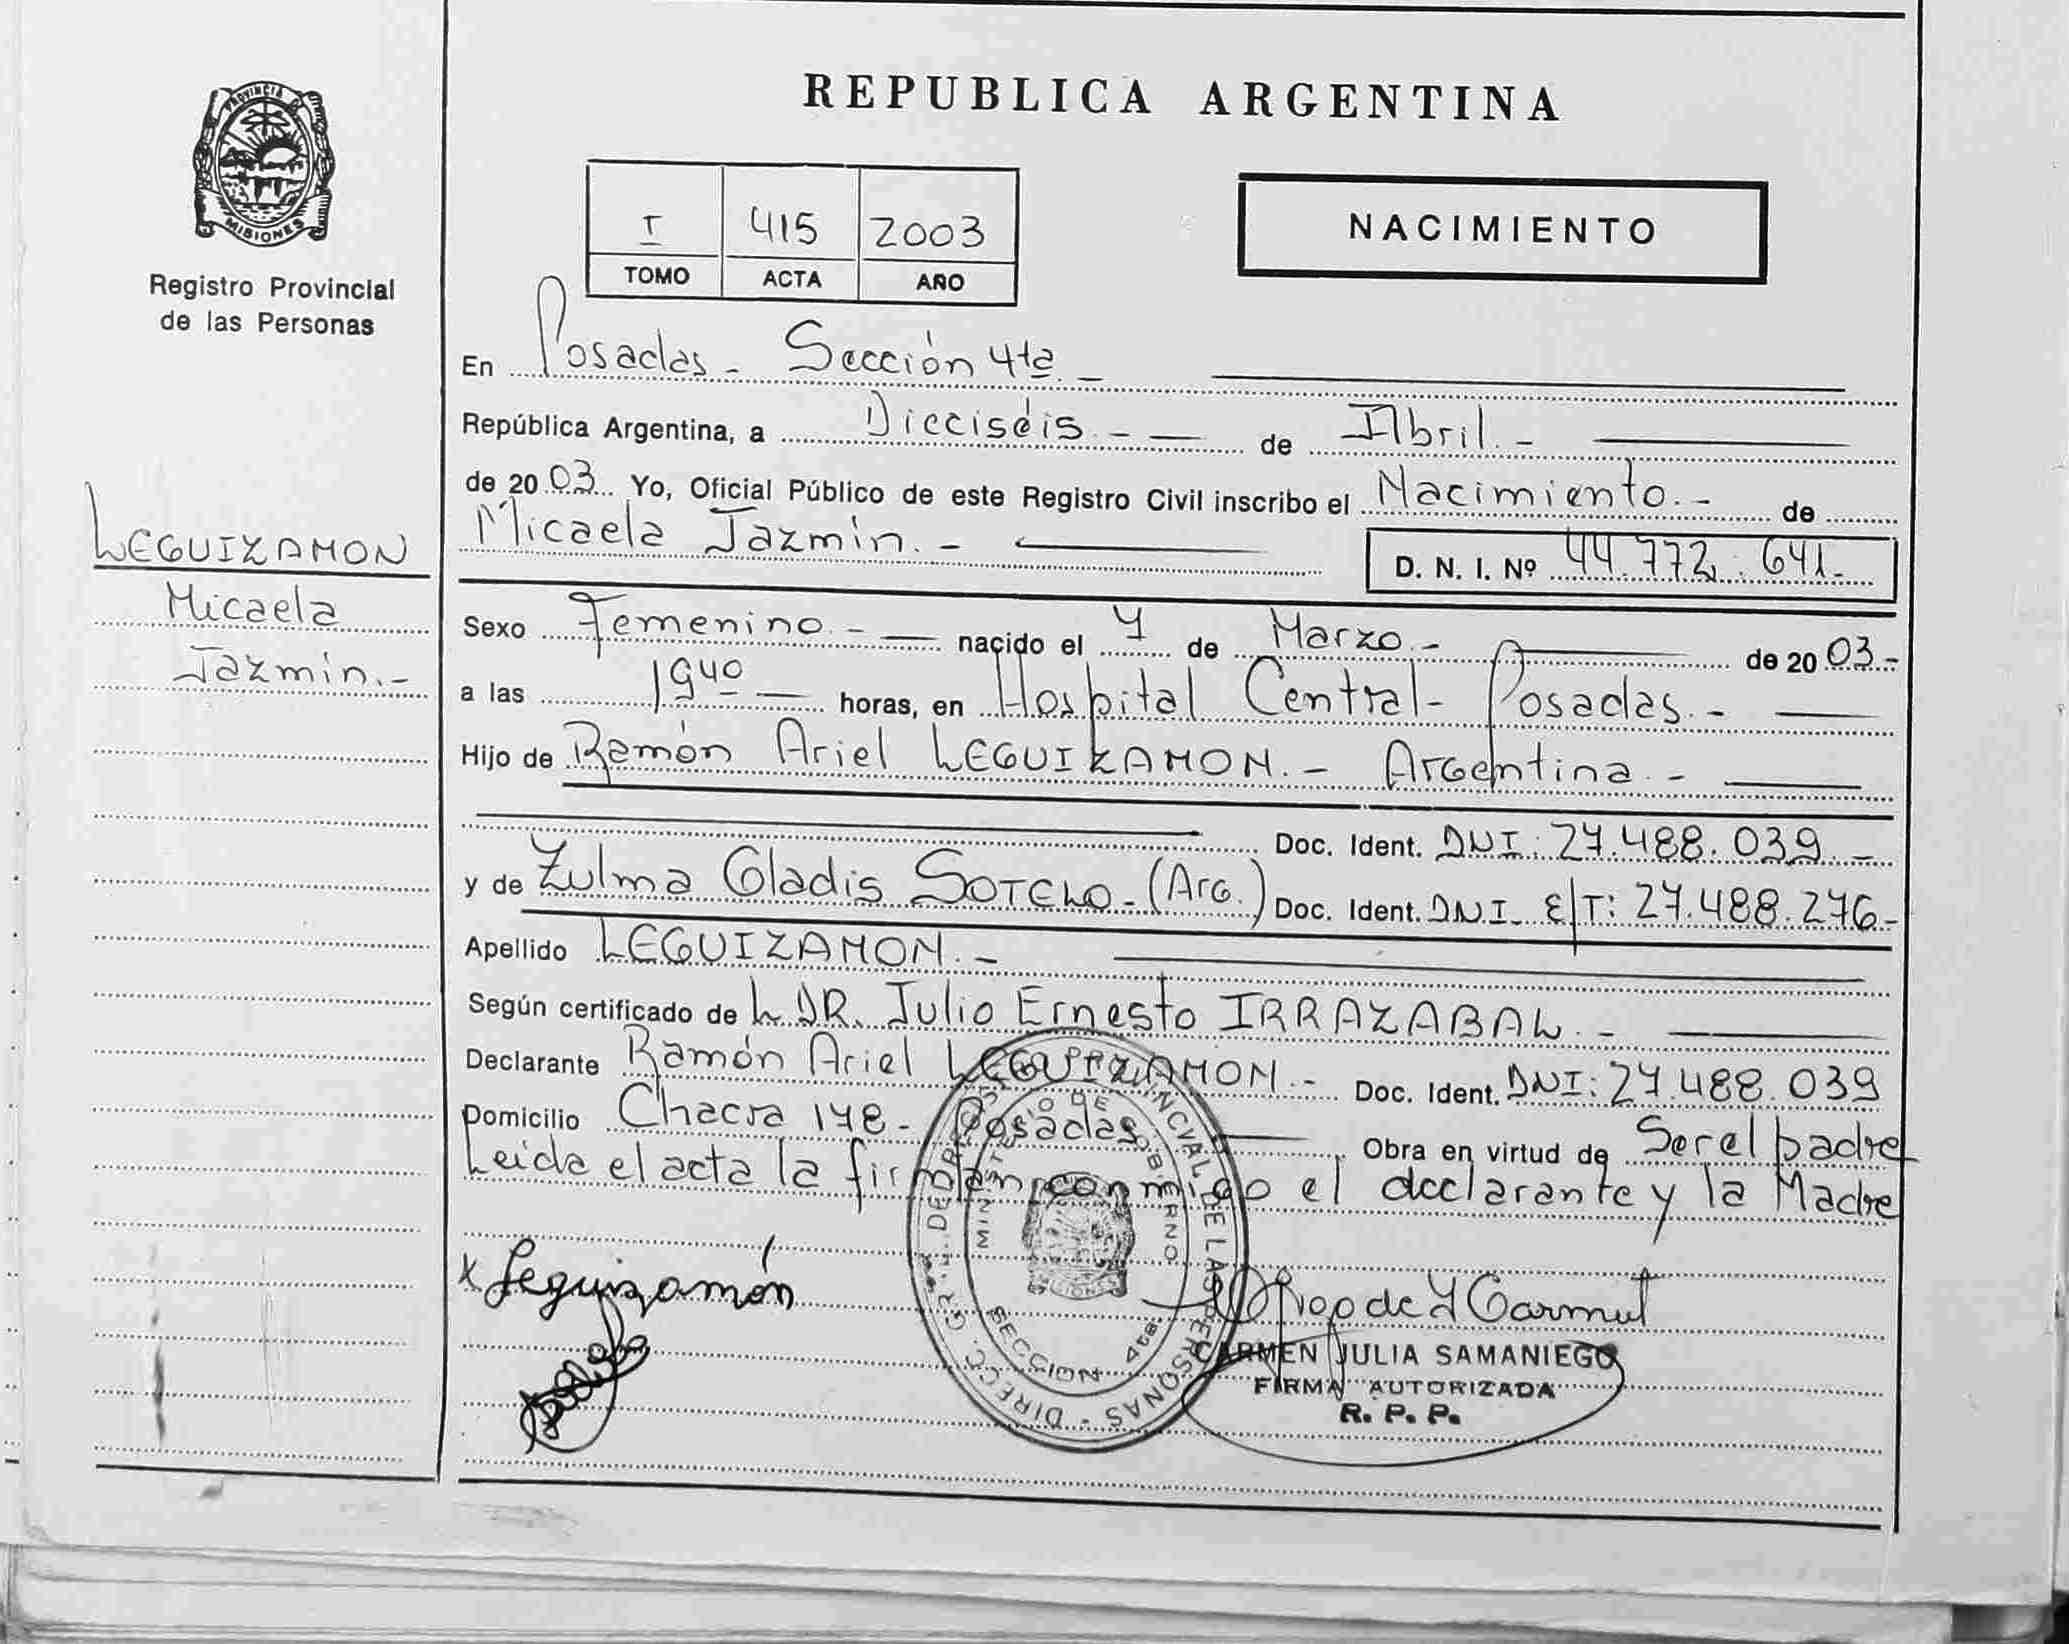 REPUBLICA ARGENTINA
PROVINCIA DE
MISIONES
Registro Provincial
de las Personas
I 415 2003
TOMO ACTA AÑO
NACIMIENTO
En Posadas - Sección 4ta. -
República Argentina, a Dieciséis. - de Abril. -
de 2003 Yo, Oficial Público de este Registro Civil inscribo el Nacimiento. - de
Micaela Jazmín. - D. N. I. Nº 44.772.641.-
LEGUIZAMON
Micaela
Jazmín. -
Sexo Femenino. - nacido el 7 de Marzo. - de 2003.-
a las 1940 horas, en Hospital Central - Posadas. -
Hijo de Ramón Ariel LEGUIZAMON. - Argentina. -
Doc. Ident. DNI: 27.488.039. -
y de Zulma Gladis SOTELO - (Arg.) Doc. Ident. DNI. E/T: 27.488.276-
Apellido LEGUIZAMON. -
Según certificado de L DR. Julio Ernesto IRRAZABAL. -
Declarante Ramón Ariel LEGUIZAMON. - Doc. Ident. DNI: 27.488.039
Domicilio Chacra 148 - Posadas Obra en virtud de Ser el padre
Leida el acta la firman conmigo el declarante y la Madre
x Leguizamón
DIRECC. GRAL. DEL REG. PROVINCIAL DE LAS PERSONAS
MINISTERIO DE GOBIERNO
SECCION 4ta.
CARMEN JULIA SAMANIEGO
FIRMA AUTORIZADA
R. P. P.